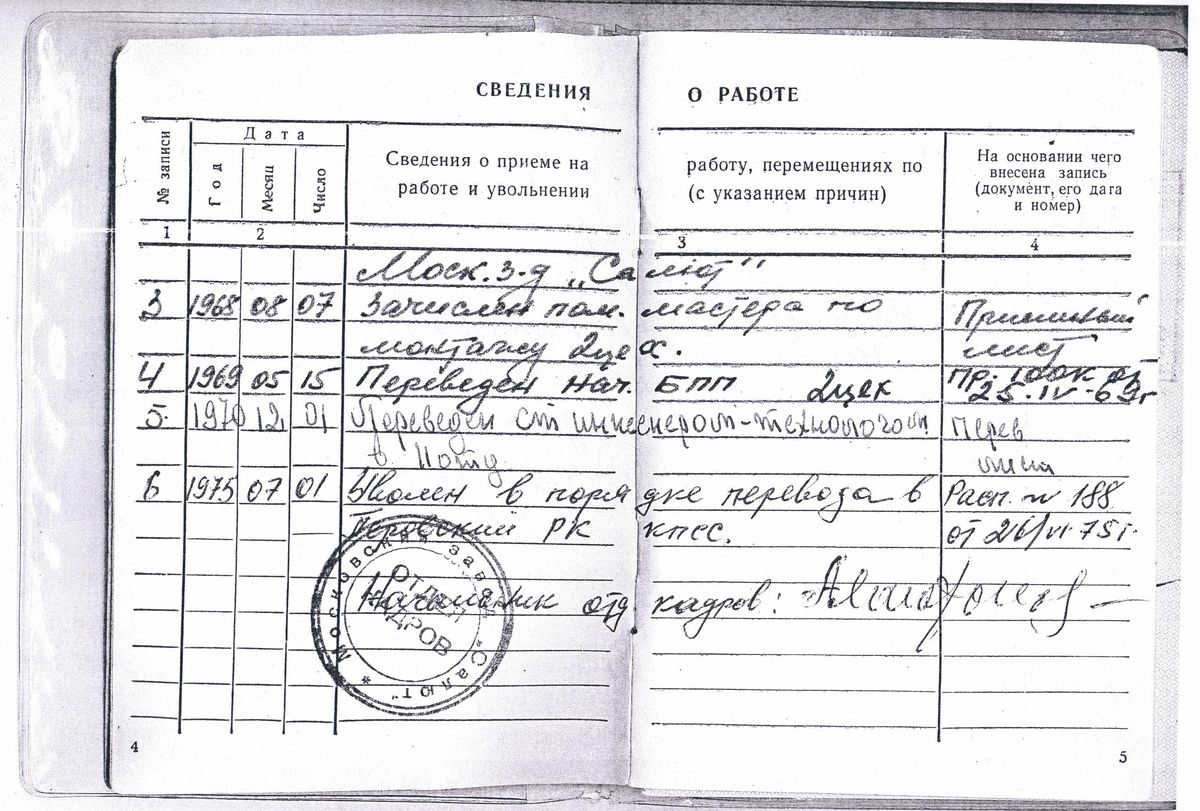 СВЕДЕНИЯ О РАБОТЕ
№ записи
Дата
Год
Месяц
Число
Сведения о приеме на работу, перемещениях по
работе и увольнении (с указанием причин)
На основании чего
внесена запись
(документ, его дата
и номер)
1 2 3 4
Моск. з-д „Салют"
3 1968 08 07 Зачислен пом. мастера по
монтажу 2 цех.
Приемный
лист
4 1969 05 15 Переведен нач. БПП 2 цех
Пр. 100К от
25.IV-69г
5 1970 12 01 Переведен ст инженером-технологом
в
Перев
6 1975 07 01 Уволен в порядке перевода в
Расп. № 188
Перовский РК КПСС.
от 26/VI 75г.
Начальник отд. кадров:
Московский завод „Салют" *
ОТДЕЛ
КАДРОВ
4
5